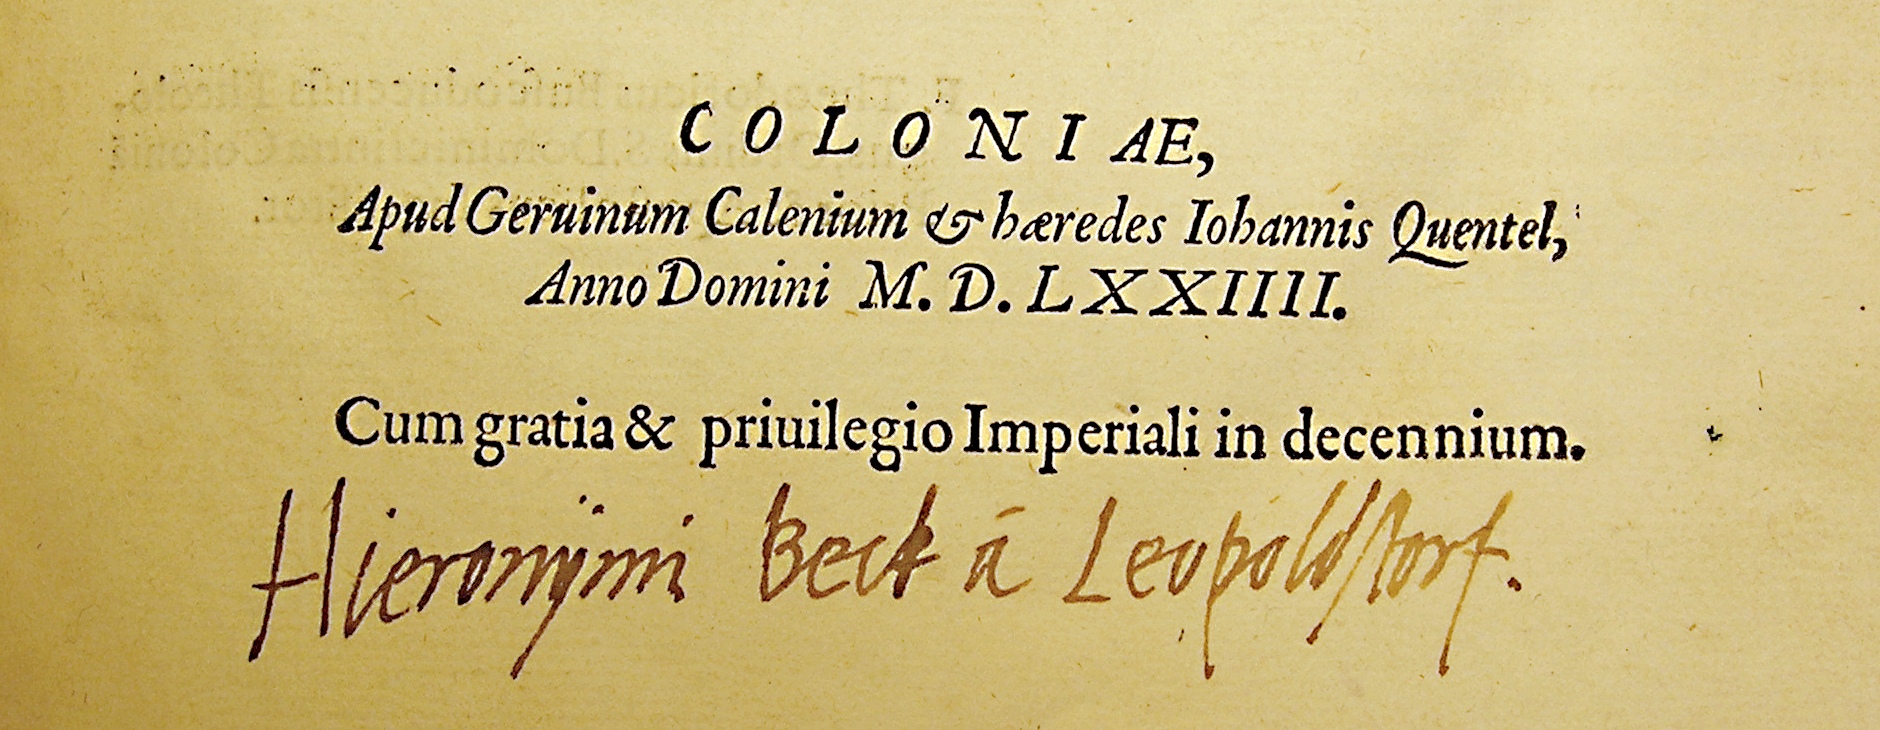 COLONIAE,
Apud Geruinum Calenium & hæredes Iohannis Quentel,
Anno Domini M. D. LXXIIII.
Cum gratia & priuilegio Imperiali in decennium.
Hieronÿmi Beck à Leopoldstorf.